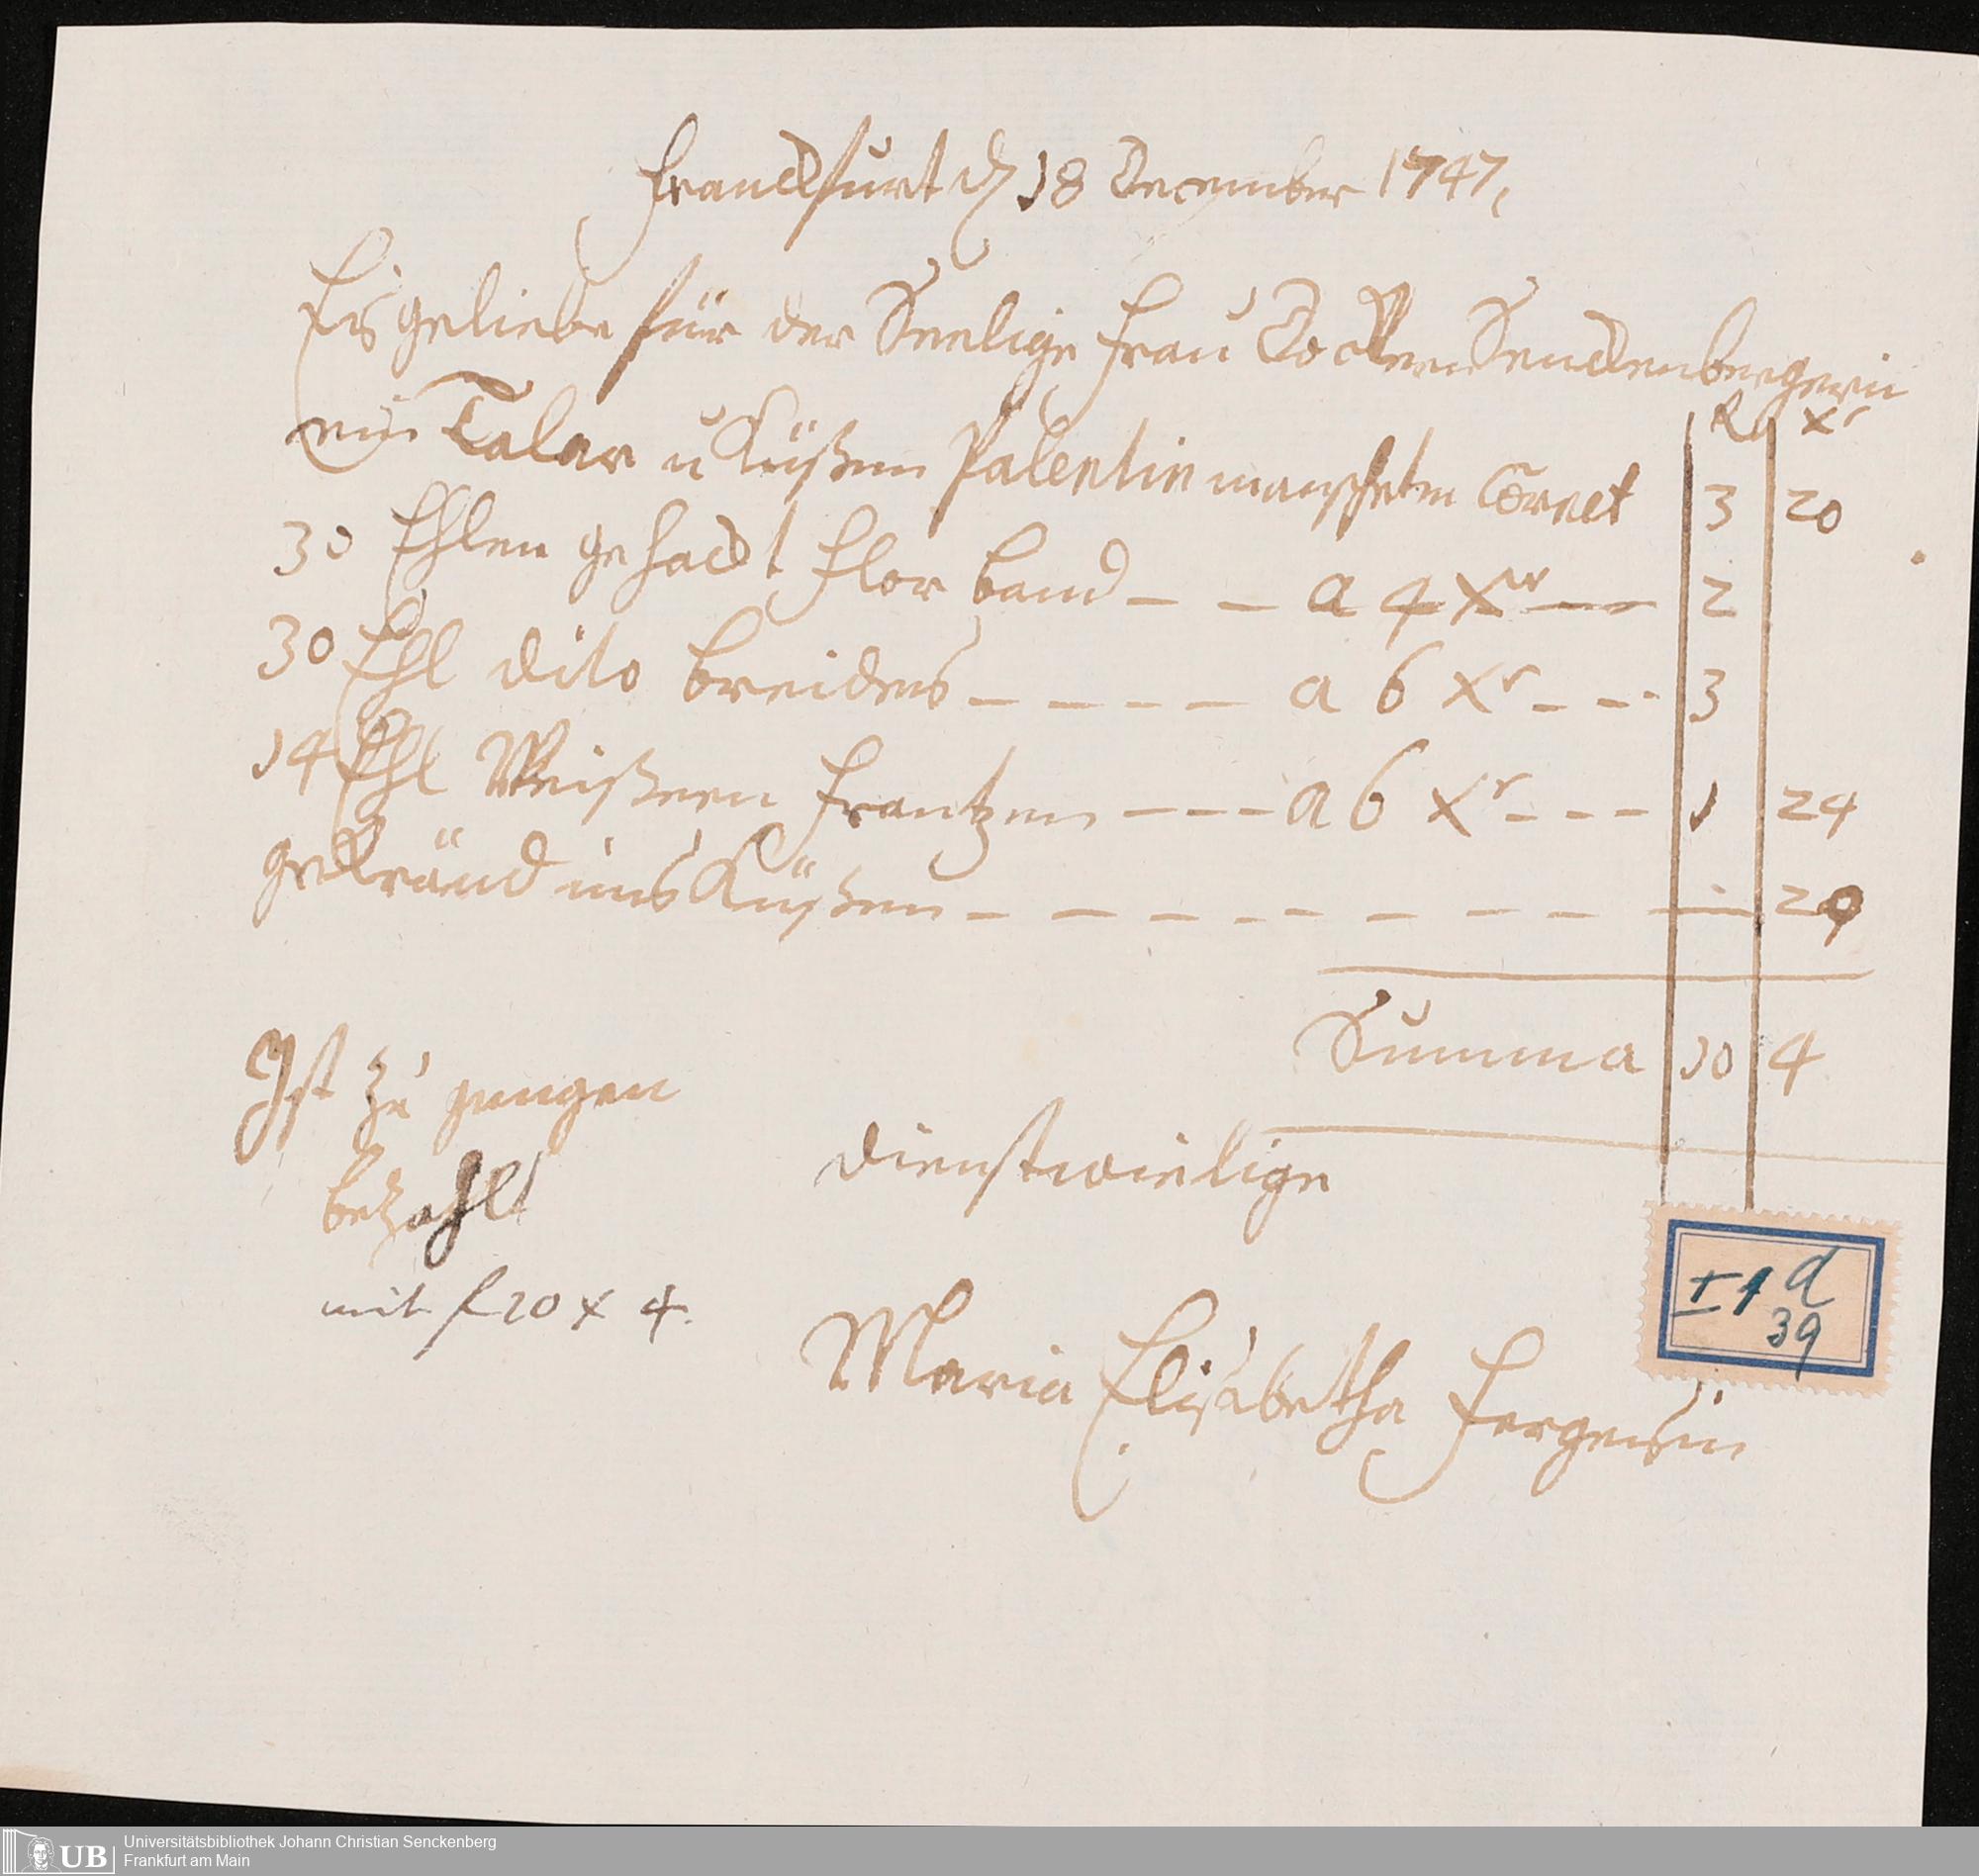 Franckfurt d 18 December 1747,
Es geliebe für der Seelige Frau Dockter Senckenbergerin
R xr
ein Talar u Küßen Palentin manscheten Cornet 3 20
30 Ehlen gehackt Flor band — — a 4 xr — — 2
30 Ehl dito breides — — — — a 6 xr — — - 3
14 Ehl Weißeen Frantzen — — — a 6 xr - - - 1 24
gekräud ins Küßen — — — — — — — — 20
Summa 10 4
Ist zu
bezahlt
mit f 10 x 4.
dienstwielige
Maria Elisabetha Fergersin
I 1 d
39
UB
Universitätsbibliothek Johann Christian Senckenberg
Frankfurt am Main